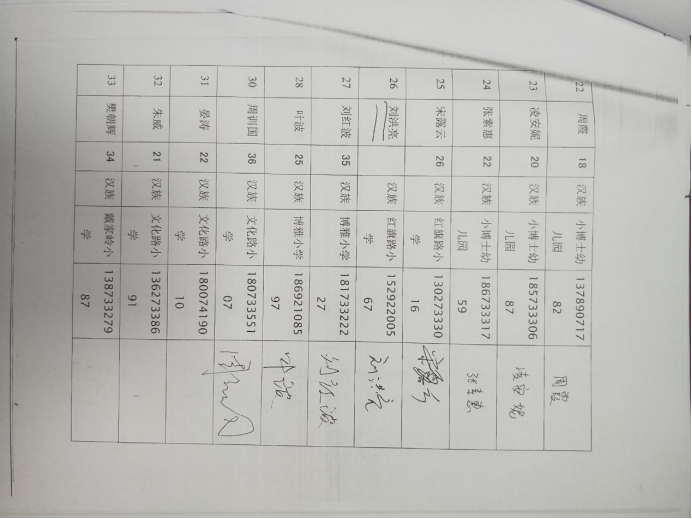 22 周霞 18 汉族 小博士幼儿园 13789071782 周霞
23 凌安妮 20 汉族 小博士幼儿园 18573330687 凌安妮
24 张素惠 22 汉族 小博士幼儿园 18673331759 张素惠
25 宋露云 26 汉族 红旗路小学 13027333016 宋露云
26 刘洪亮 汉族 红旗路小学 15292200567 刘洪亮
27 刘红波 35 汉族 博雅小学 18173322227 刘红波
28 叶波 25 汉族 博雅小学 18692108597 叶波
30 周训国 36 汉族 文化路小学 18073355107
31 晏涛 22 汉族 文化路小学 18007419010
32 朱威 21 汉族 文化路小学 13627338691
33 樊朝辉 34 汉族 戴家岭小学 13873327987